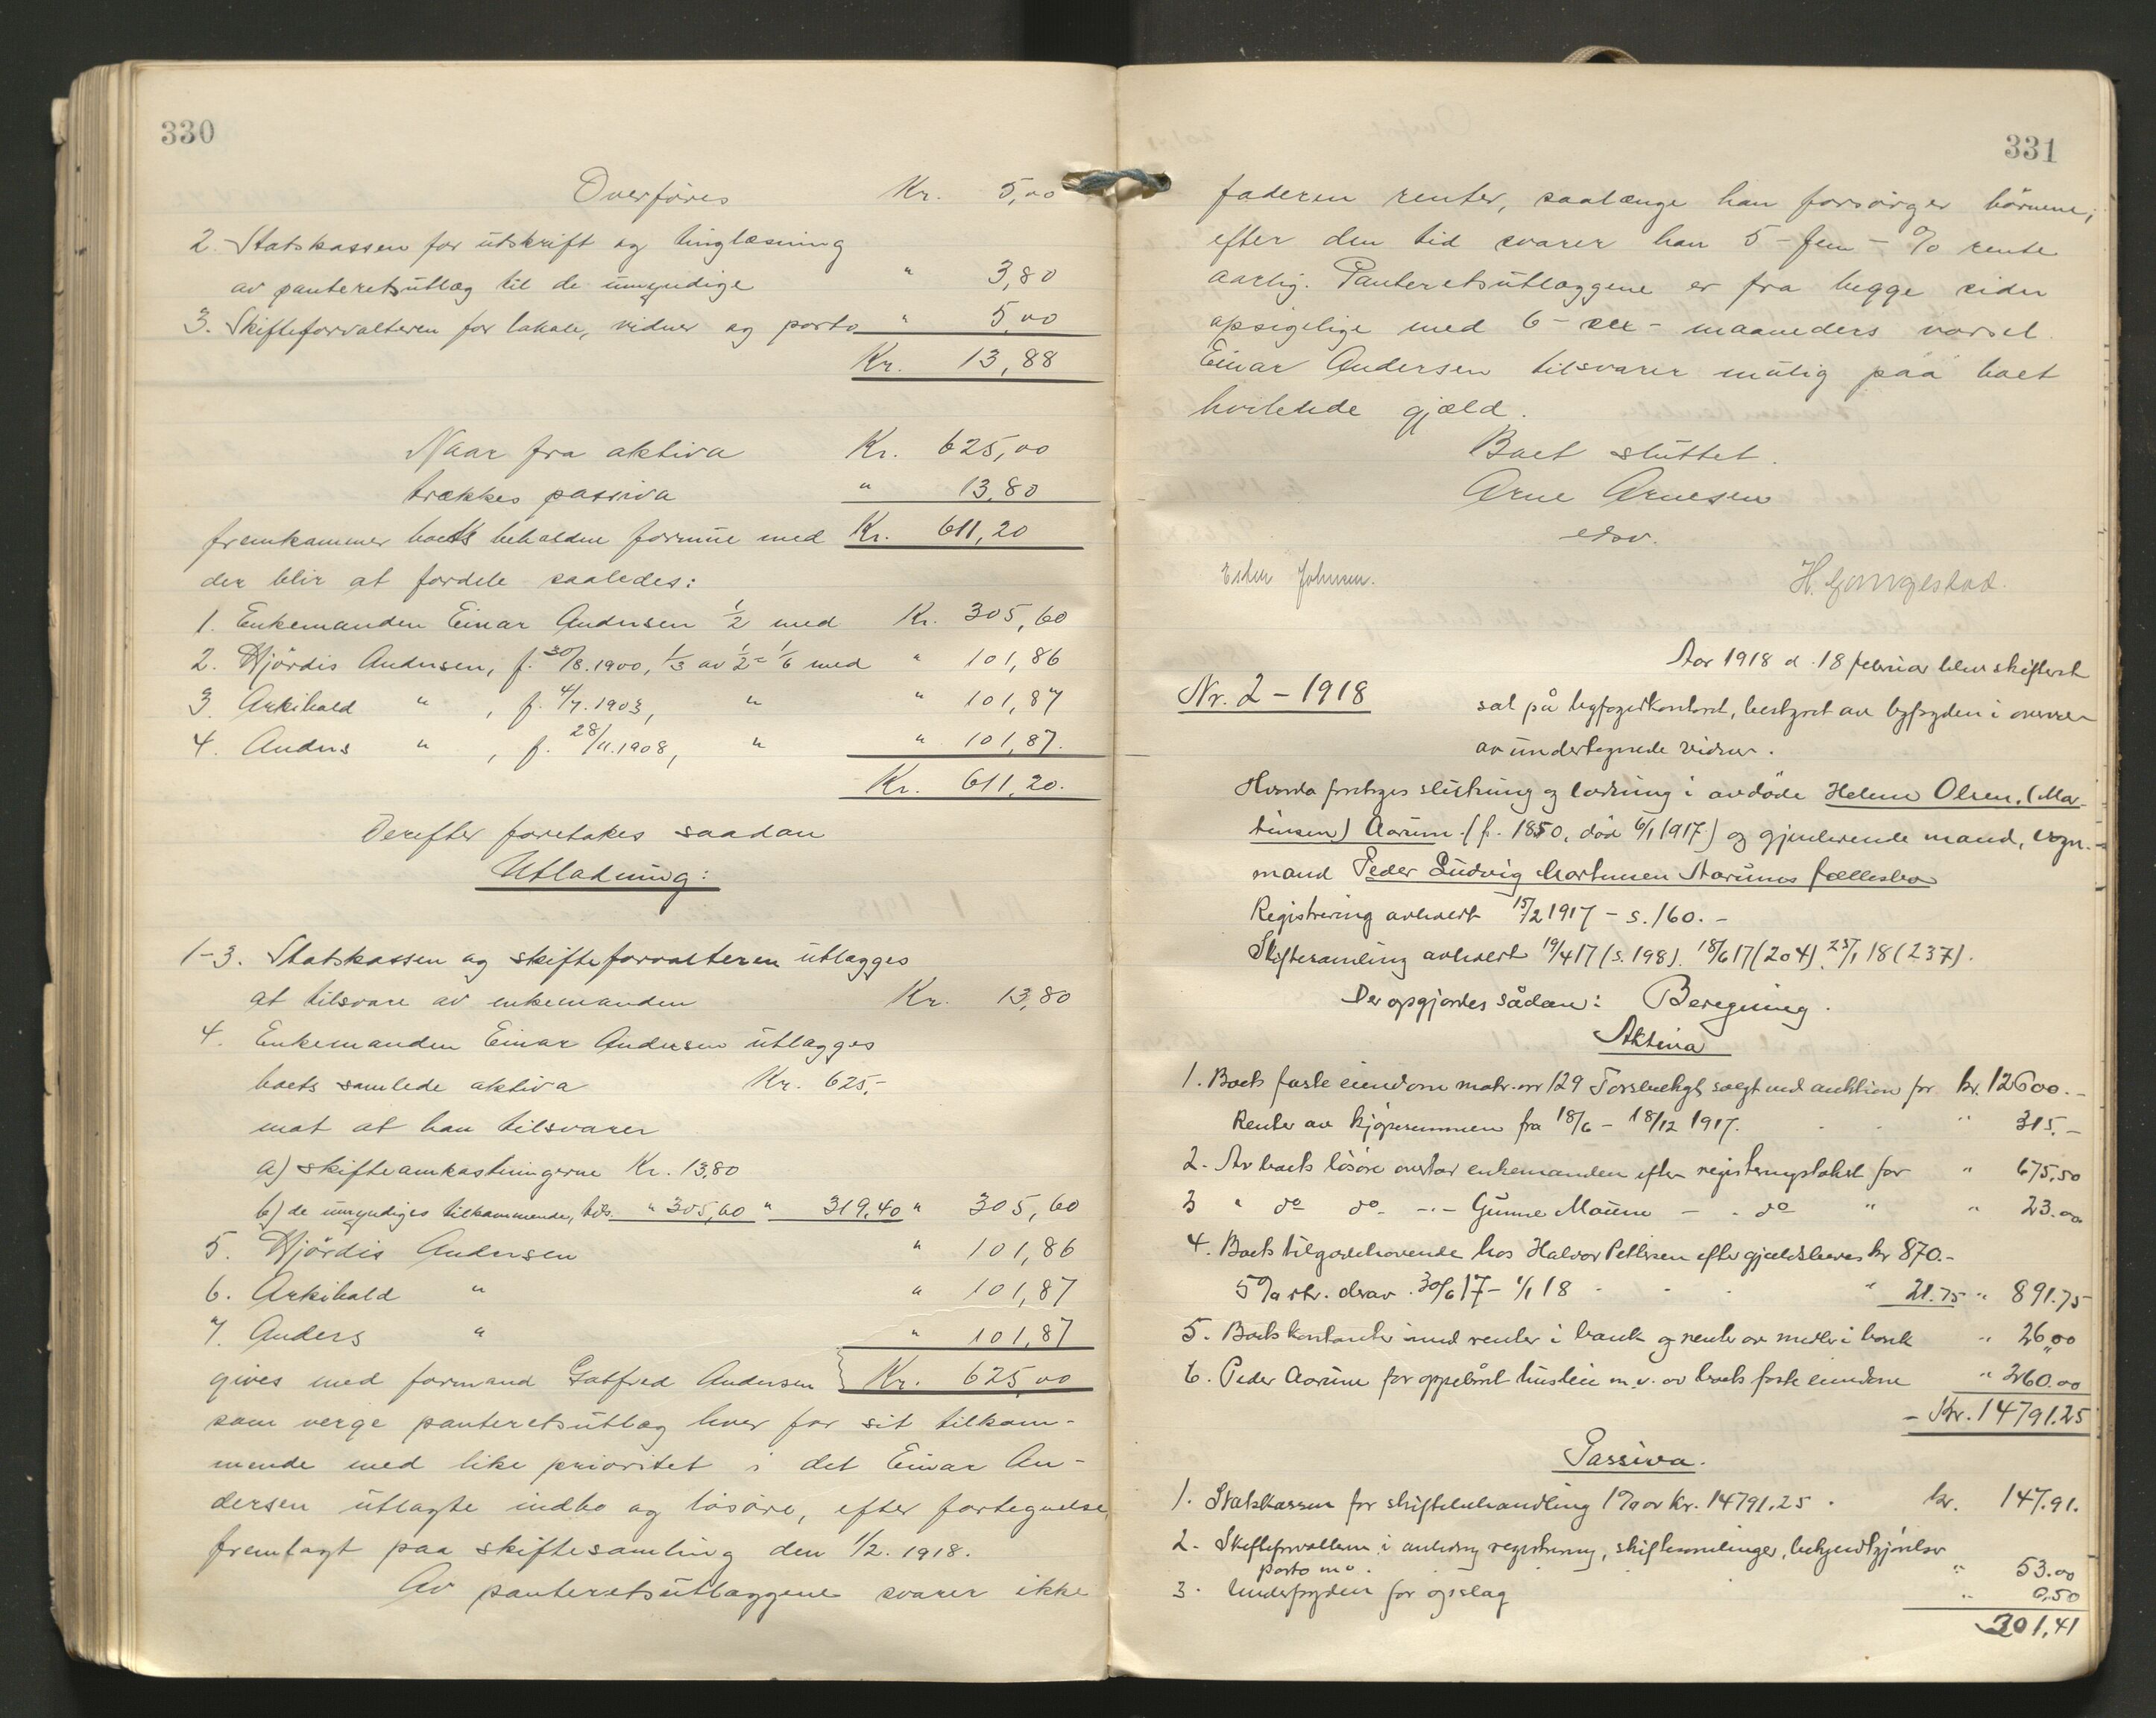 330
Overføres Kr. 5,00
2. Statskassen for utskrift og tinglæsning
av panteretsutlæg til de umyndige " 3,80
3. Skifteforvalteren for lokale, vidner og porto " 5,00
Kr. 13,88
Naar fra aktiva Kr. 625,00
trækkes passiva " 13,80
fremkommer boets beholdne formue med Kr. 611,20
der blir at fordele saaledes:
1. Enkemanden Einar Andersen 1/2 med Kr. 305,60
2. Hjördis Andersen, f. 30/8.1900, 1/3 av 1/2 = 1/6 med " 101,86
3 Arkibald " , f. 4/7.1903, " " 101,87
4. Anders " , f. 28/11.1908, " " 101,87.
Kr. 611,20.
Derefter foretakes saadan
Utlodning:
1-3. Statskassen og skifteforvalteren utlægges
at tilsvare av enkemanden Kr. 13,80
4. Enkemanden Einar Andersen utlægges
boets samlede aktiva Kr. 625,-
mot at han tilsvarer
a) skifteomkostningerne Kr. 13,80
b) de umyndiges tilkommende, tils. " 305,60 " 319,40 " 305,60
5. Hjördis Andersen " 101,86
6. Arkibald " " 101,87
7. Anders " " 101,87
gives med formand Gotfred Andersen } Kr. 625,00
som verge panteretsutlæg hver for sit tilkom-
mende med like prioritet i det Einar An-
dersen utlagte indbo og lösöre, efter fortegnelse,
fremlagt paa skiftesamling den 1/2. 1918.
Av panteretsutlæggene svarer ikke
331
faderen renter, saalænge han forsörger börnene;
efter den tid svarer han 5 - fem - % rente
aarlig. Panteretsutlæggene er fra begge sider
opsigelige med 6 - sex - maaneders varsel.
Einar Andersen tilsvarer mulig paa boet
hvilende gjæld.
Boet sluttet.
Arne Arnesen
edsv.
Esther Johnsen.
Aar 1918 d. 18 februar blev skifteret
Nr. 2 - 1918
sat på byfogedkontoret, bestyret av byfogden i overvær
av undertegnede vidner.
Hvorda foretoges slutning og lodning i avdöde Helene Olsen, (Mar-
tinsen) Aorum. (f. 1850, död 6/1 1917) og gjenlevende mand, vogn-
mand Peder Ludvig Martinsen Aarums fællesbo
Registrering avholdt 15/2 1917 - s. 160. -
Skiftesamling avholdt 19/4 17 (s. 198). 18/6 17 (204). 25/1 18 (237).
Der opgjordes sådan: Beregning.
Aktiva
1. Boets faste eiendom matr. nr 129 solgt ved auktion for kr. 12600.-
Renter av kjöpesummen fra 18/6 - 18/12 1917. " 315.-
2. Av boets lösöre overtar enkemanden efter registreringstakst for " 675,50
3 " do do -"- Gunne Moum - " do " " 23.00
4. Boets tilgodehavende hos Halvor Pettersen efter gjældsbevis kr 870.-
5% rtr. derav 30/6 17 - 1/1 18 " 21.75 " 891.75
5. Boets kontanter med renter i bank og rente av midler i bank " 26,00
6. Peder Aorum for oppebåret husleie m.v. av boets faste eiendom " 260.00
Kr. 14791.25
Passiva.
1. Statskassen for skiftebehandling 1% av Kr. 14791.25. kr. 147.91.
2. Skifteforvalteren i anledning registrering, skiftesamlinger, bekjendtgjörelser
porto m.v. " 53.00
3. Underfogden for opslag " 0,50
301,41